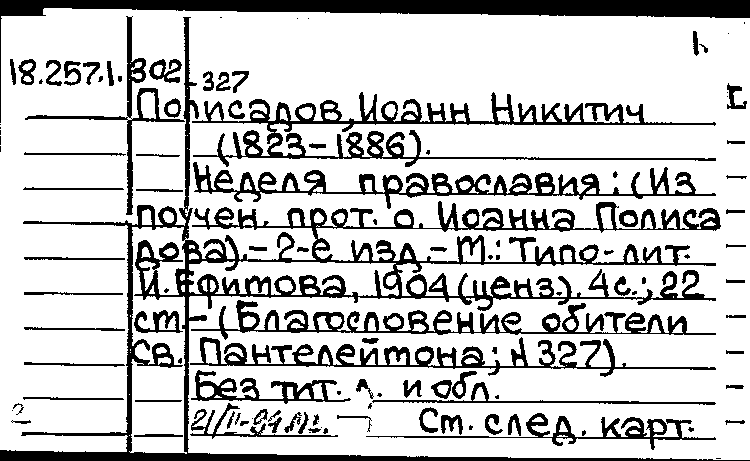 1.
18.257.1.302-327
Полисадов, Иоанн Никитич
(1823-1886).
Неделя православия: (Из
поучен. прот. о. Иоанна Полиса
дова).-2-е изд.-М.: Типо-лит.
И. Ефимова, 1904(ценз.). 4с.; 22
см.-(Благословение обители
Св. Пантелеймона; N 327).
Без тит. л. и обл.
Ст. след. карт.